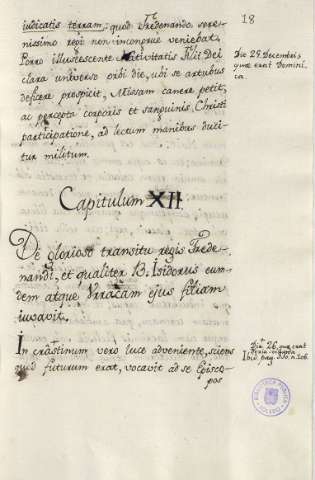 18
iudicatis terram; quod Fredenando sere-
nissimo regi non incongrue veniebat.
Porro illuscescente Nativitatis Filii Dei
clara universo orbi die, ubi se artubus
deficere prospicit, Missam canere petit,
ac percepta corporis et sanguinis Christi
participatione, ad lectum manibus duci-
tur militum.
Die 25. Decembri,
quæ erat Domini-
ca.
Capitulum XII.
De glorioso transitu regis Frede-
nandi, et qualiter B. Isidorus eun-
dem atque Urracam ejus filiam
iuvavit.
In crastinum vero luce adveniente, sciens
quod futurum erat, vocavit ad se Episco-
pos
Die 26. quæ erat
feria secunda
Ibid. pag.
BIBLIOTECA PUBLICA
TOLEDO